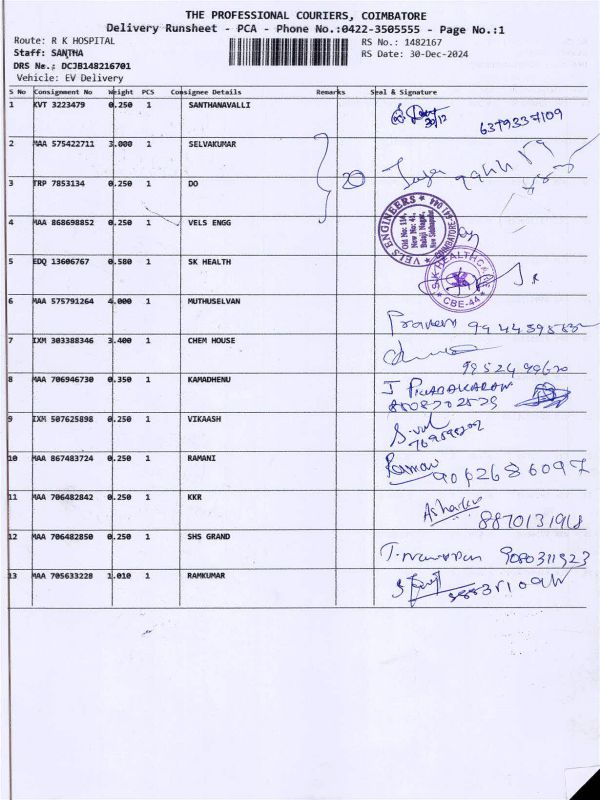 THE PROFESSIONAL COURIERS, COIMBATORE
Delivery Runsheet - PCA - Phone No.:0422-3505555 - Page No.:1
Route: R K HOSPITAL
RS No.: 1482167
Staff: SANTHA
RS Date: 30-Dec-2024
DRS No.: DCJB148216701
Vehicle: EV Delivery
S No Consignment No Weight PCS Consignee Details Remarks Seal & Signature
1 KVT 3223479 0.250 1 SANTHANAVALLI
30/12 6379337109
2 MAA 575422711 3.000 1 SELVAKUMAR
3 TRP 7853134 0.250 1 DO
20
4 MAA 868698852 0.250 1 VELS ENGG
VELS ENGINEERS
COIMBATORE-641 044
5 EDQ 13606767 0.580 1 SK HEALTH
SK HEALTHCARE
CBE-44
6 MAA 575791264 4.000 1 MUTHUSELVAN
Praveen
7 IXM 303388346 3.400 1 CHEM HOUSE
8 MAA 706946730 0.350 1 KAMADHENU
9 IXM 507625898 0.250 1 VIKAASH
10 MAA 867483724 0.250 1 RAMANI
9062686097
11 MAA 706482842 0.250 1 KKR
12 MAA 706482850 0.250 1 SHS GRAND
9080311323
13 MAA 705633228 1.010 1 RAMKUMAR